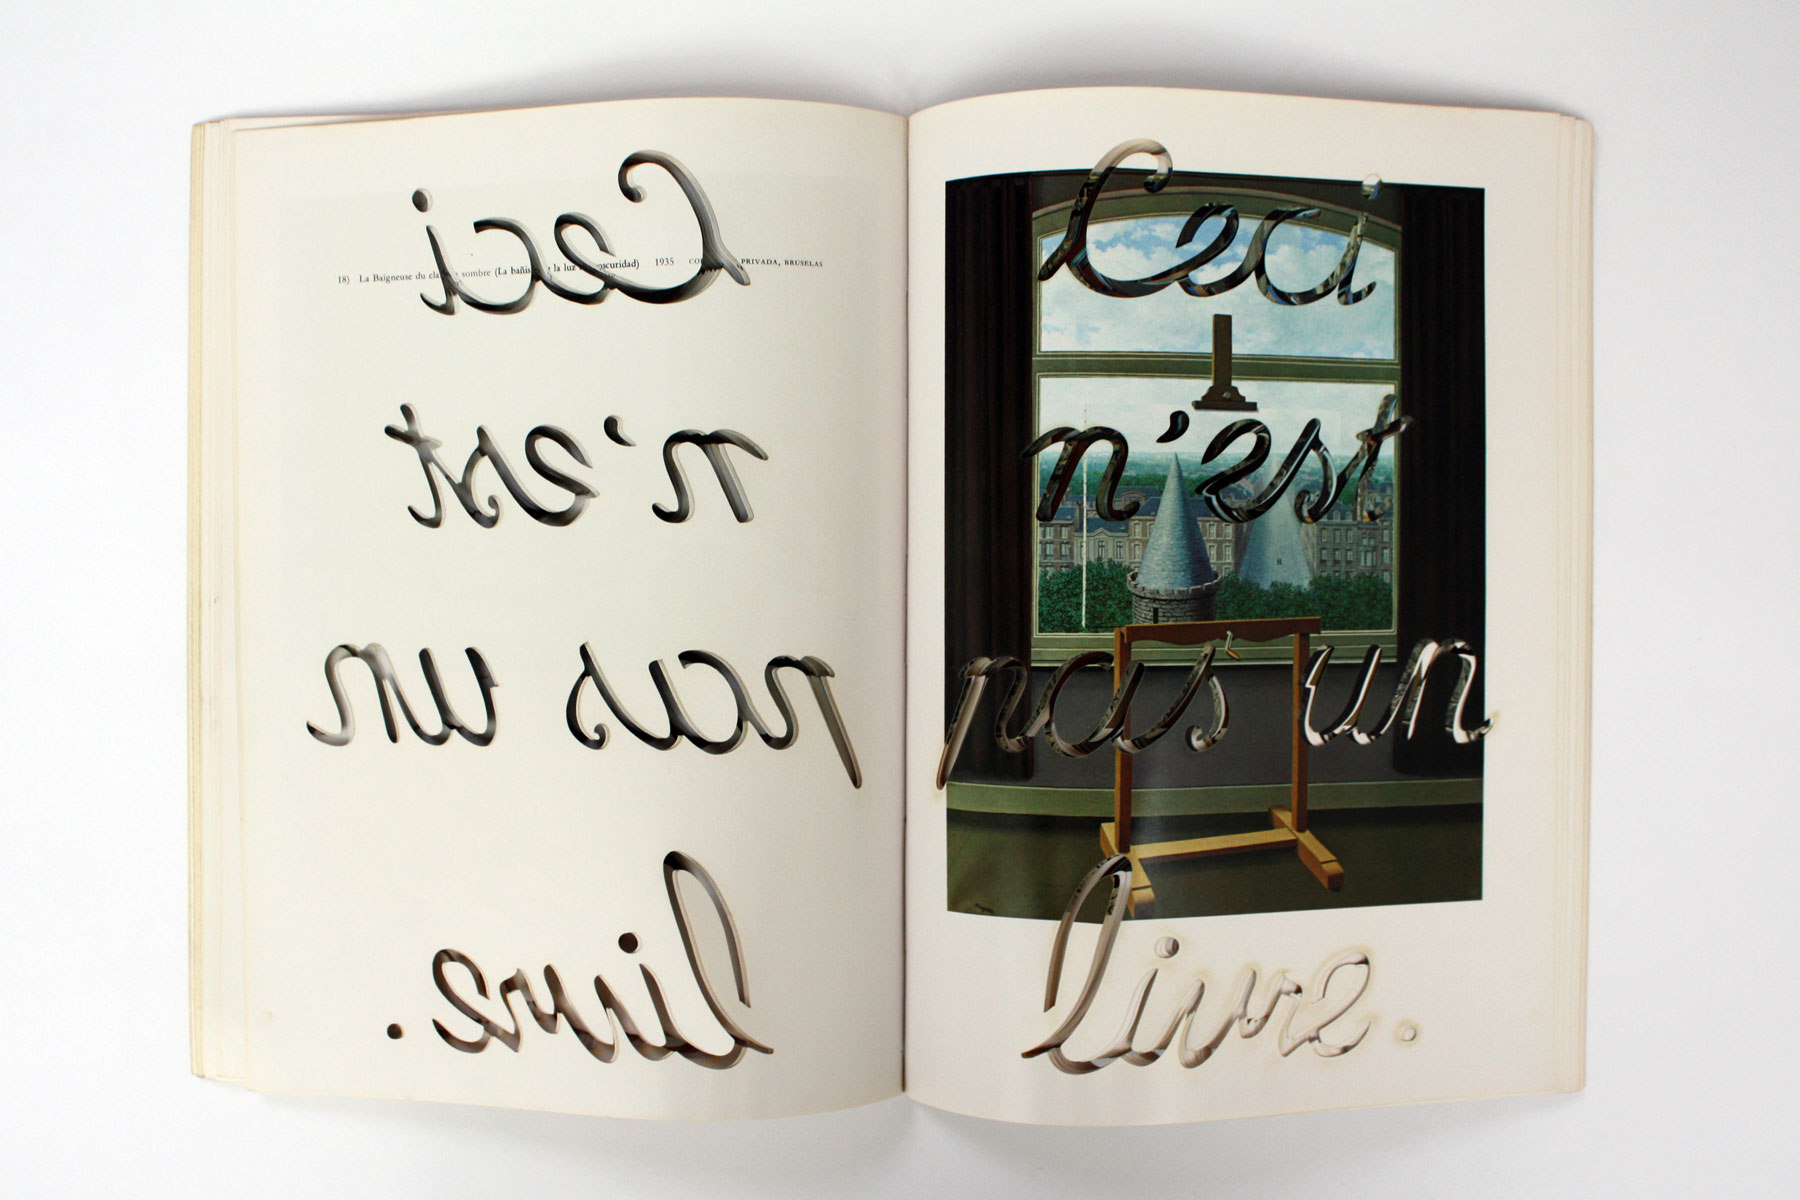 Ceci
18) La Baigneuse du sombre (La la luz oscuridad) 1935 PRIVADA, BRUSELAS
n'est
pas un
livre.
Ceci
n'est
pas un
livre.